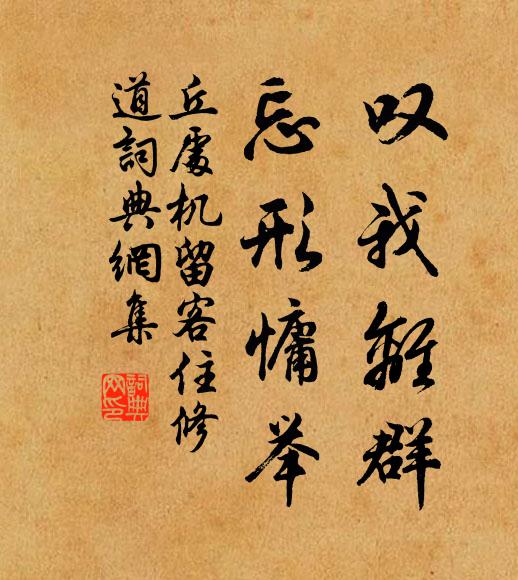 叹我離群
忘形慵举
丘處机留客住修
道詞典網集
詞典
网印